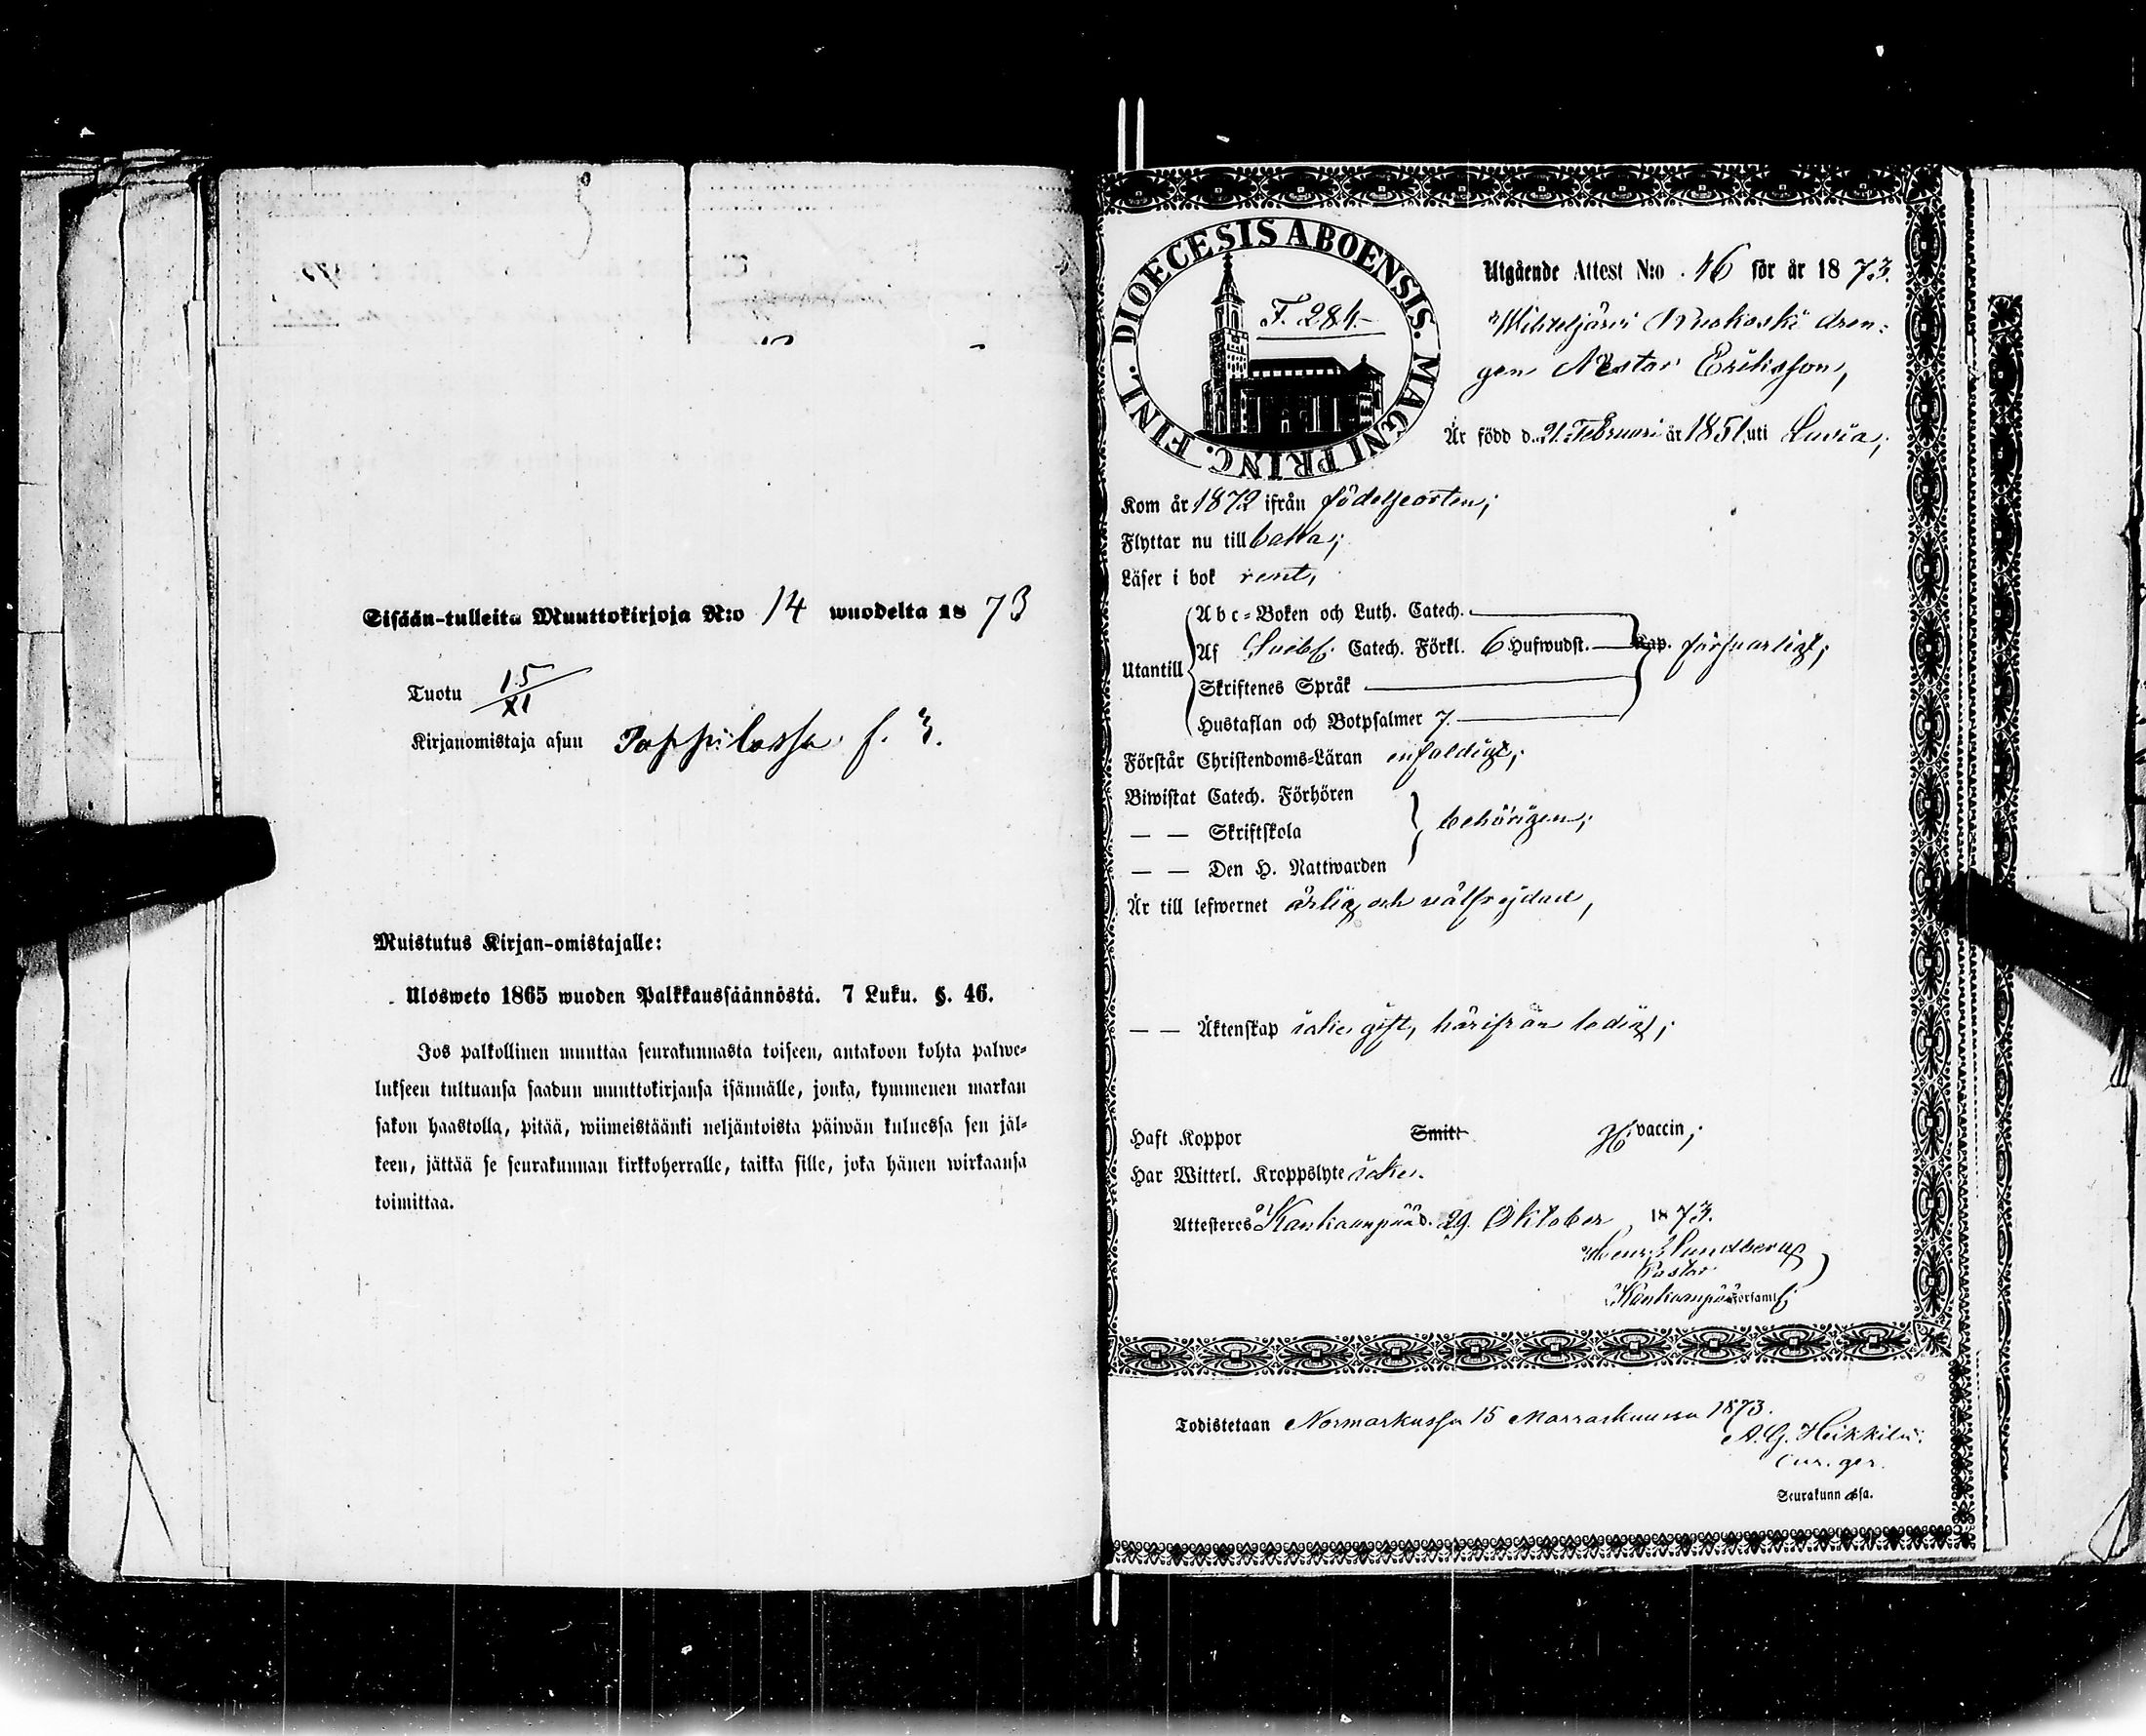 Sisään-tulleita Muuttokirjoja N:o 14 wuodelta 1873
Tuotu 15/XI
Kirjanomistaja asuu Pappilassa s. 3.
Muistutus Kirjan-omistajalle:
Ulosweto 1865 wuoden Palkkaussäännöstä. 7 Luku. §. 46.
Jos palkollinen muuttaa seurakunnasta toiseen, antakoon kohta palwe-
lukseen tultuansa saadun muuttokirjansa isännälle, jonka, kymmenen markan
sakon haastolla, pitää, wiimeistäänki neljäntoista päiwän kuluessa sen jäl-
keen, jättää se seurakunnan kirkkoherralle, taikka sille, joka hänen wirkaansa
toimittaa.
DIOECESIS ABOENSIS. MAGNI PRINC. FINL.
F. 284.
Utgående Attest N:o 46 för år 1873.
drän-
gen Nestor Eriksson,
Är född d. 21. Februari år 1851. uti Luvia;
Kom år 1872 ifrån födelseorten;
Flyttar nu till
Läser i bok rent,
Utantill
Abc-Boken och Luth. Catech.
Af Sveb: Catech. Förkl. 6 Hufwudst. Kap. försvarligt;
Skriftenes Språk
Hustaflan och Botpsalmer 7.
Förstår Christendoms-Läran enfaldigt;
Biwistat Catech. Förhören
— — Skriftskola behörigen;
— — Den H. Nattwarden
Är till lefwernet ärlig och välfrejdad,
— — Äktenskap icke gift, härifrån ledig;
Haft Koppor Smitt H. vaccin;
Har Witterl. Kroppslyte icke.
Attesteres Kankaanpää d. 29 Oktober 1873.
Lundberg
Pastor
Kankaanpää Församl:
Todistetaan Normarkussa 15 Marraskuussa 1873.
A. G. Heikkilä.
cur. ger.
Seurakunnassa.